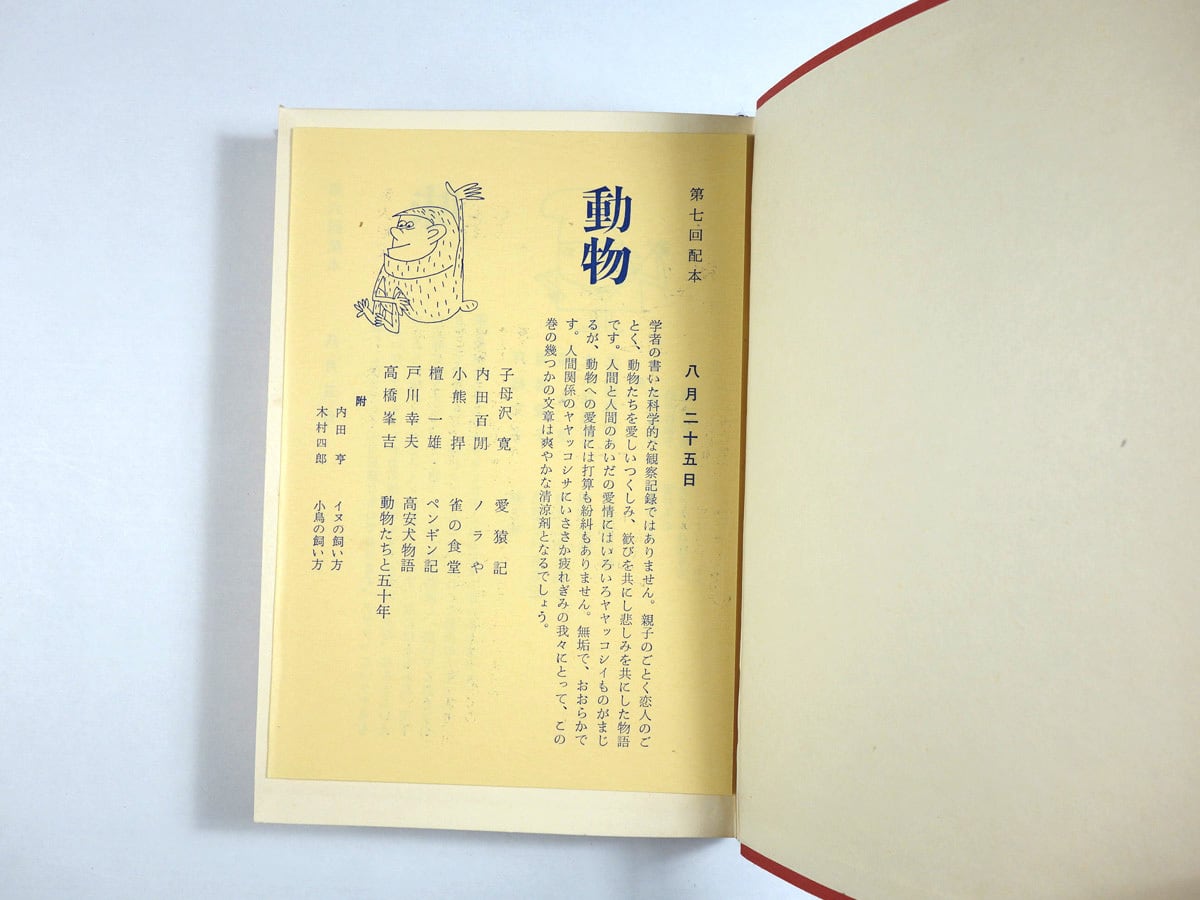 第七回配本
八月二十五日
動物
学者の書いた科学的な観察記録ではありません。親子のごとく恋人のご
とく、動物たちを愛しいつくしみ、歓びを共にし悲しみを共にした物語
です。人間と人間のあいだの愛情にはいろいろヤヤッコシイものがまじ
るが、動物への愛情には打算も紛糾もありません。無垢で、おおらかで
す。人間関係のヤヤッコシサにいささか疲れぎみの我々にとって、この
巻の幾つかの文章は爽やかな清涼剤となるでしょう。
子母沢寛 愛猿記
内田百閒 ノラや
小熊捍 雀の食堂
檀一雄 ペンギン記
戸川幸夫 高安犬物語
高橋峯吉 動物たちと五十年
附
内田亨 イヌの飼い方
木村四郎 小鳥の飼い方